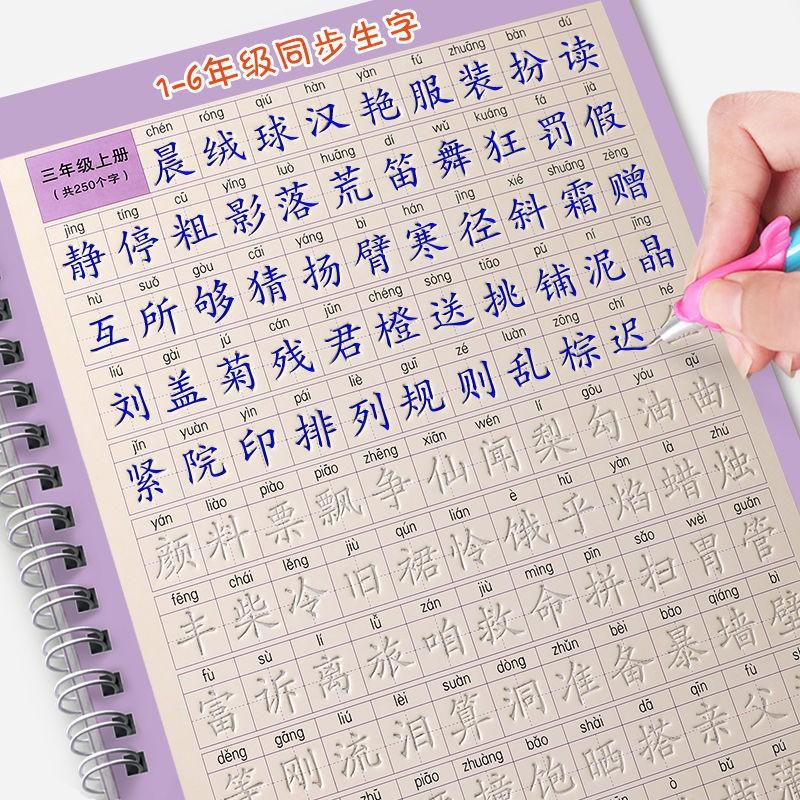 1-6年级同步生字
三年级上册
（共250个字）
chén róng qiú hàn yàn fú zhuāng bàn dú
晨绒球汉艳服装扮读
jìng tíng cū yǐng luò huāng dí wǔ kuáng fá jià
静停粗影落荒笛舞狂罚假
hù suǒ gòu cāi yáng bì hán jìng xié shuāng zèng
互所够猜扬臂寒径斜霜赠
liú gài jú cán jūn chéng sòng tiāo pū ní jīng
刘盖菊残君橙送挑铺泥晶
jǐn yuàn yìn pái liè guī zé luàn zōng chí hé
紧院印排列规则乱棕迟
yán liào piào piāo zhēng xiān wén lí gōu yóu qǔ
颜料票飘争仙闻梨勾油曲
fēng chái lěng jiù qún lián è hū yàn là zhú
丰柴冷旧裙怜饿乎焰蜡烛
fù sù lí lǚ zán jiù mìng pīn sǎo wèi guǎn
富诉离旅咱救命拼扫胃管
děng gāng liú lèi suàn dòng zhǔn bèi bào qiáng bì
等刚流泪算洞准备暴墙壁
piāo zhuàng bǎo shài dā qīn fù
撞饱晒搭亲父